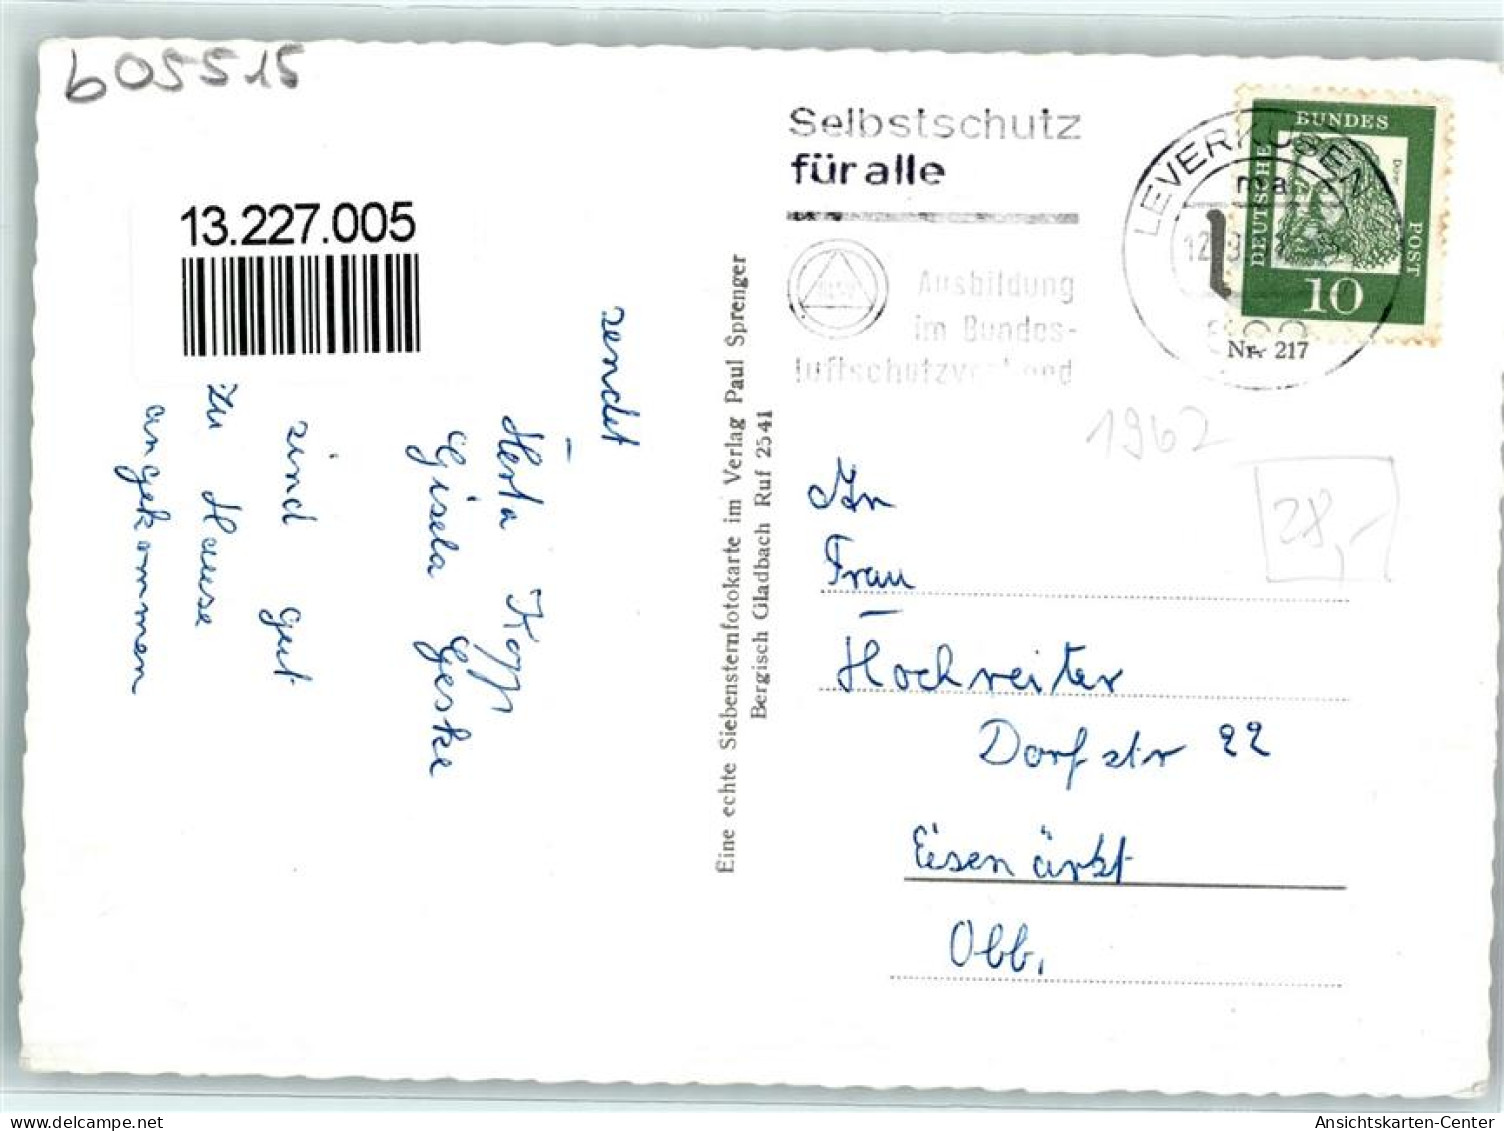 605515
13.227.005
sendet
Herta Kopp
Gisela Geske
sind gut
zu Hause
angekommen
Eine echte Siebensternfotokarte im Verlag Paul Sprenger
Bergisch Gladbach Ruf 2541
Selbstschutz
für alle
Ausbildung
im Bundes-
luftschutzverband
LEVERKUSEN
ma
DEUTSCHE
BUNDES
POST
10
Nr. 217
1962
28,-
An
Frau
Hochreiter
Dorfstr 22
Eisenärzt
Obb.
b05515.jpg
Ansichtskarten-Center